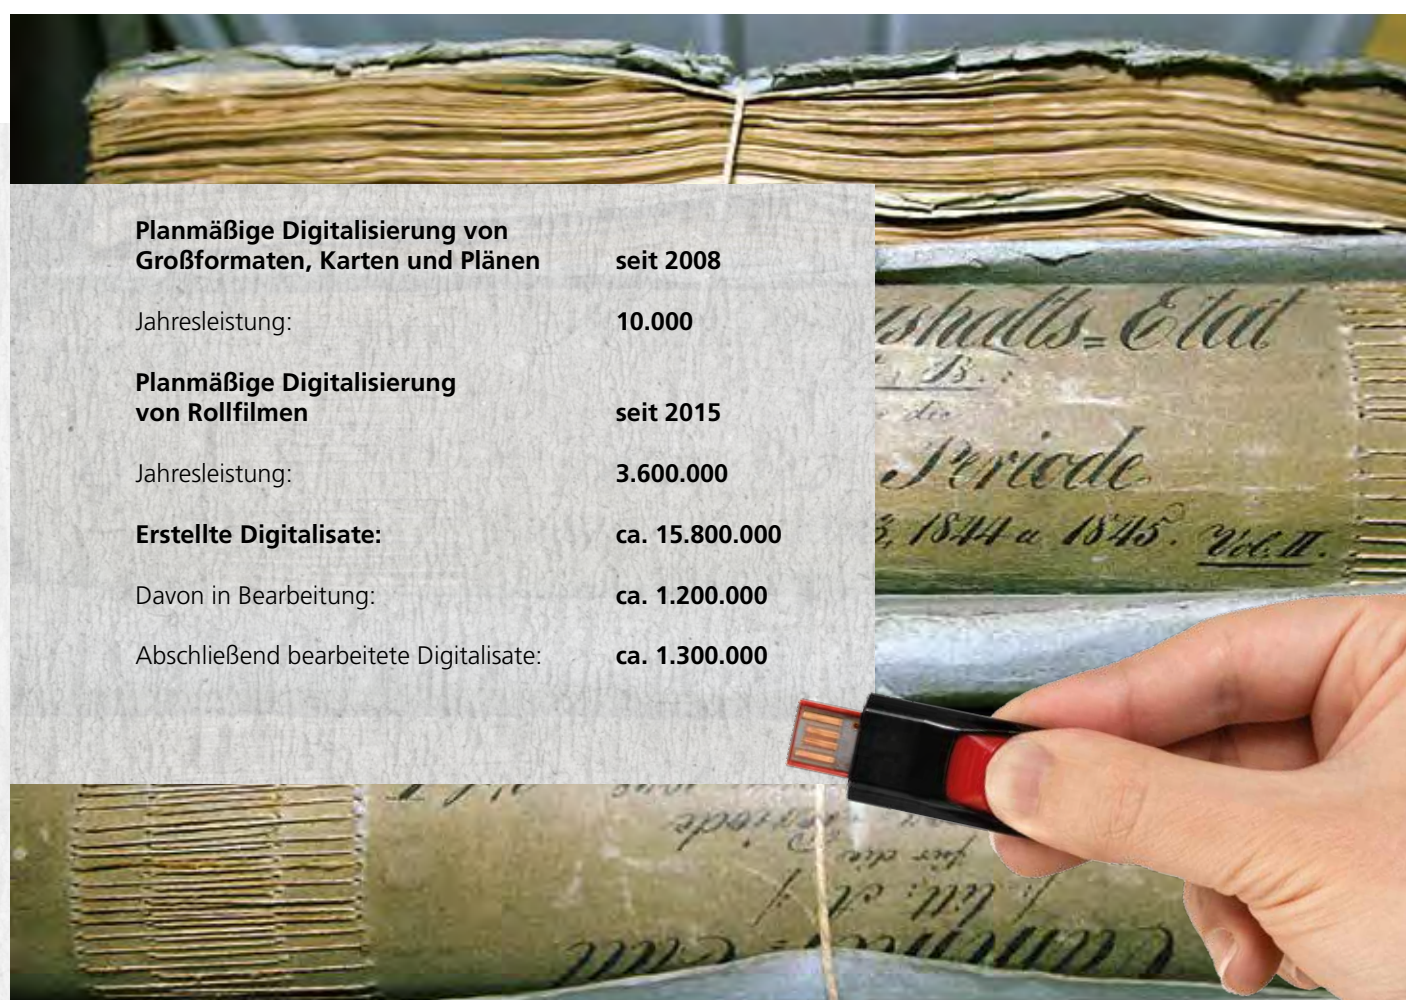 Planmäßige Digitalisierung von
Großformaten, Karten und Plänen seit 2008
Jahresleistung: 10.000
Planmäßige Digitalisierung
von Rollfilmen seit 2015
Jahresleistung: 3.600.000
Erstellte Digitalisate: ca. 15.800.000
Davon in Bearbeitung: ca. 1.200.000
Abschließend bearbeitete Digitalisate: ca. 1.300.000
Etat
B.
die
Periode
1844 u 1845. Vol. II.
Periode
für die